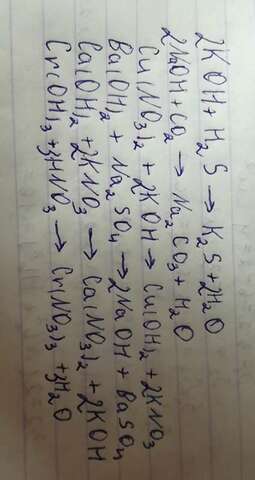 2KOH + H₂S → K₂S + 2H₂O
2NaOH + CO₂ → Na₂CO₃ + H₂O
Cu(NO₃)₂ + 2KOH → Cu(OH)₂ + 2KNO₃
Ba(OH)₂ + Na₂SO₄ → 2NaOH + BaSO₄
Ca(OH)₂ + 2KNO₃ → Ca(NO₃)₂ + 2KOH
Cr(OH)₃ + 3HNO₃ → Cr(NO₃)₃ + 3H₂O